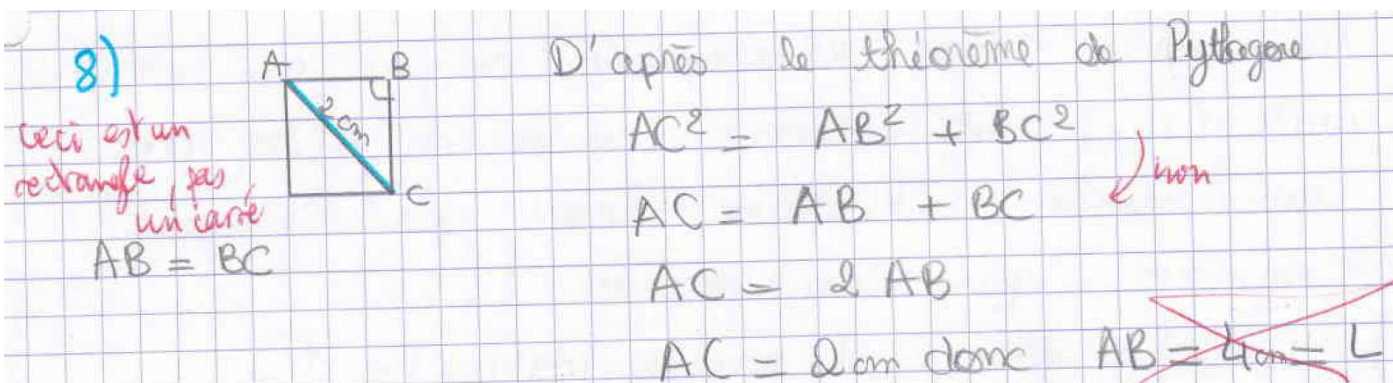 8)
A B
2 cm
C
Ceci est un
rectangle, pas
un carré
AB = BC
D'après le théorème de Pythagore
AC² = AB² + BC²
non
AC = AB + BC
AC = 2 AB
AC = 2 cm donc AB = 4 cm = L